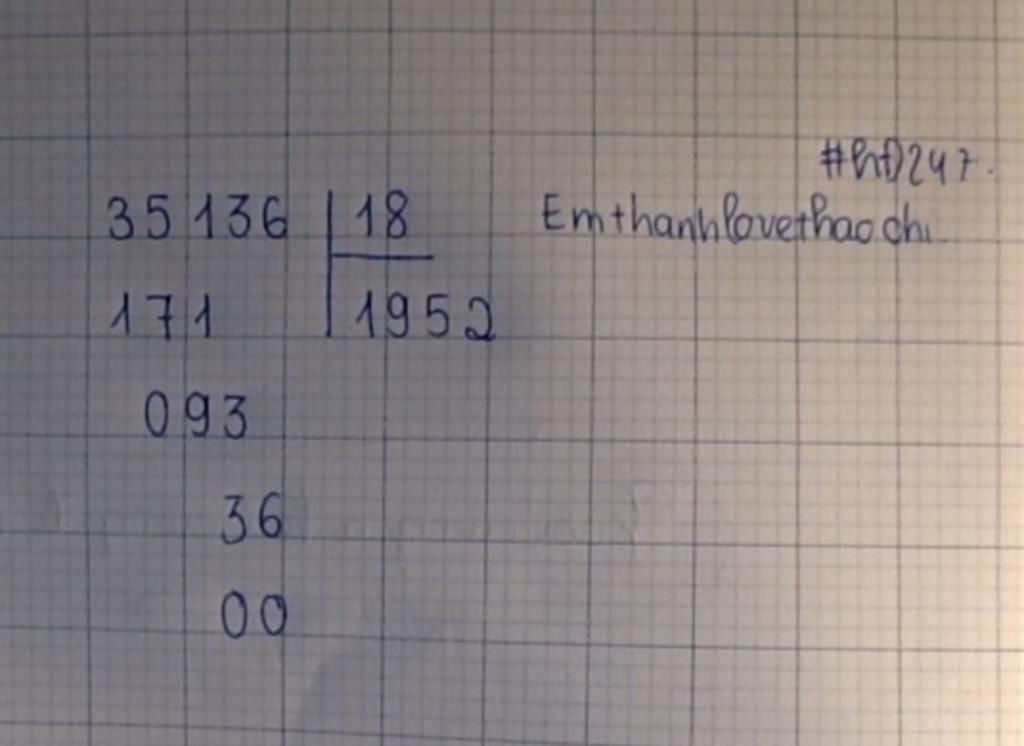 #hf)247.
35136 | 18 Emthanhlovethaochi
171 | 1952
093
36
00